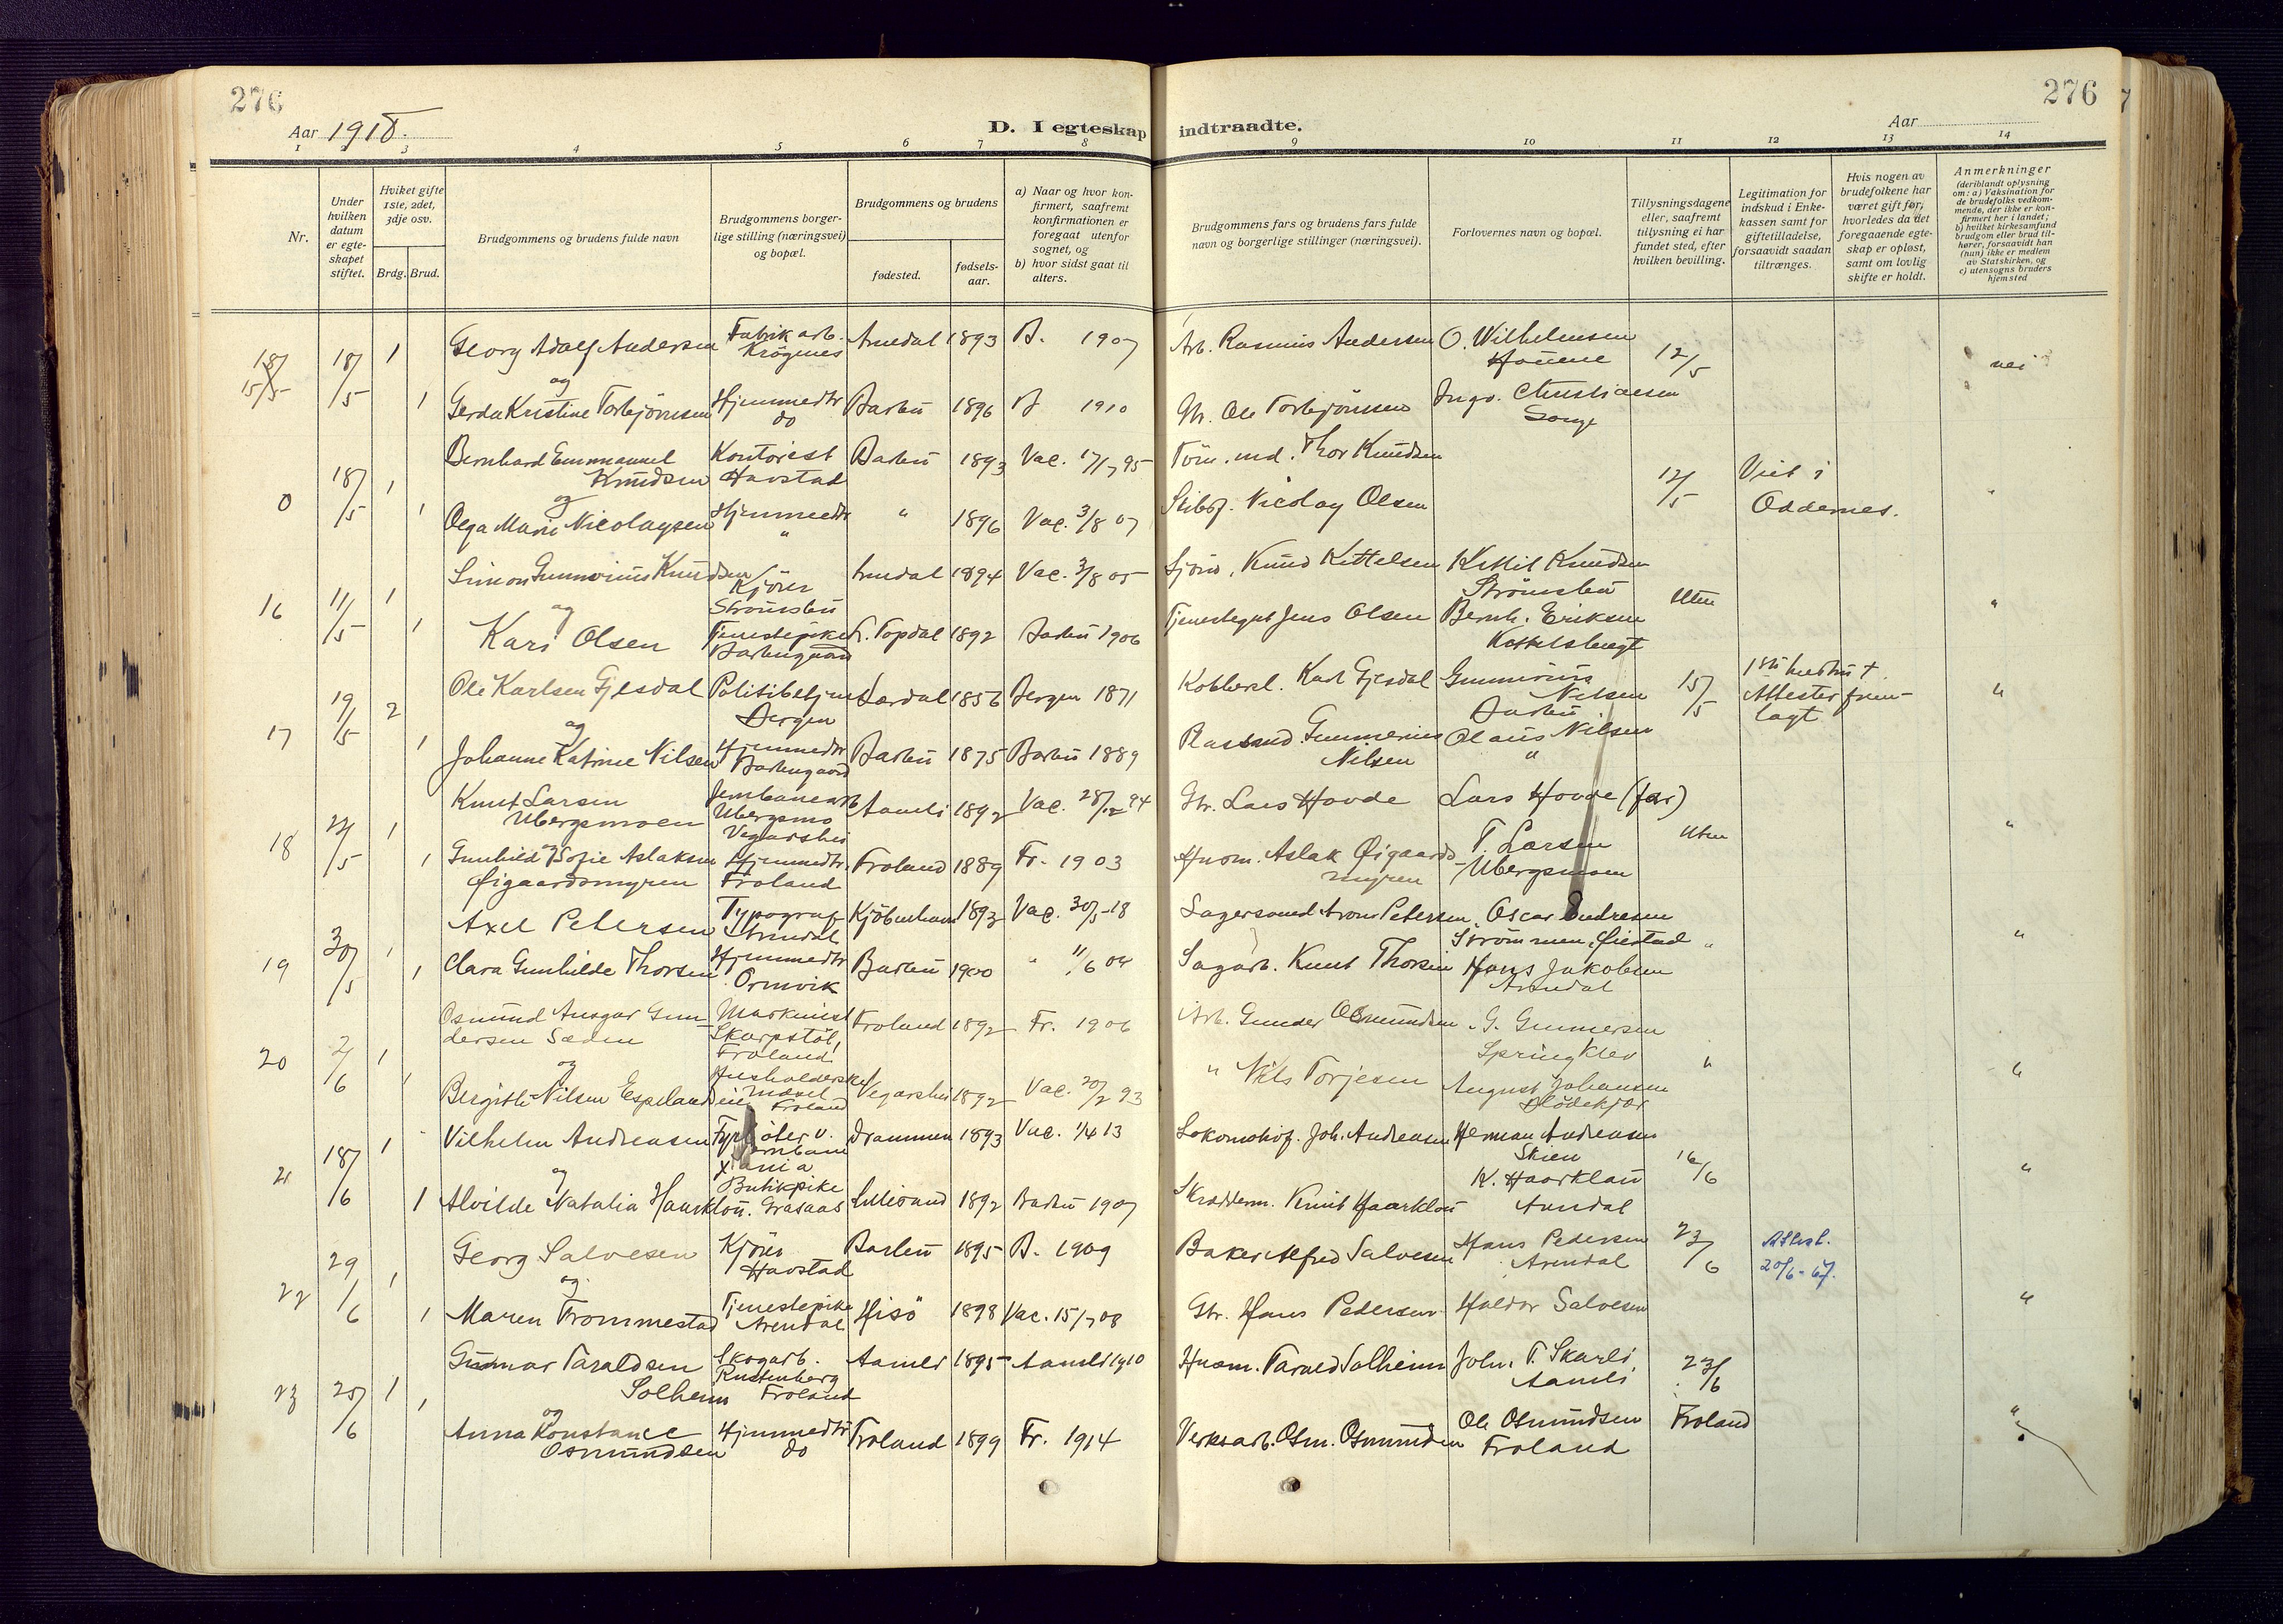 276
276
Aar 1918.
D. I egteskap indtraadte.
Aar
1 2 3 4 5 6 7 8 9 10 11 12 13 14
Nr.
Under hvilken datum er egteskapet stiftet.
Hviket gifte 1ste, 2det, 3dje osv.
Brdg. Brud.
Brudgommens og brudens fulde navn
Brudgommens borgerlige stilling (næringsvei) og bopæl.
Brudgommens og brudens
fødested.
fødselsaar.
a) Naar og hvor konfirmert, saafremt konfirmationen er foregaat utenfor sognet, og
b) hvor sidst gaat til alters.
Brudgommens fars og brudens fars fulde navn og borgerlige stillinger (næringsvei).
Forlovernes navn og bopæl.
Tillysningsdagene eller, saafremt tillysning ei har fundet sted, efter hvilken bevilling.
Legitimation for indskud i Enkekassen samt for giftetilladelse, forsaavidt saadan tiltrænges.
Hvis nogen av brudefolkene har været gift før, hvorledes da det foregaaende egteskap er opløst, samt om lovlig skifte er holdt.
Anmerkninger
(deriblandt oplysning om: a) Vaksination for de brudefolks vedkommende, der ikke er konfirmert her i landet; b) hvilket kirkesamfund brudgom eller brud tilhører, forsaavidt han (hun) ikke er medlem av Statskirken, og c) utensogns bruders hjemsted
18/5 1 Georg Adolf Andersen Fabrik arb. Krögenes Arendal 1893 B. 1907 Arb. Rasmus Andersen O. Wilhelmsen 12/5 nei
og
1 Gerda Kristine Torbjörnsen Hjemmedtr do Barbu 1896 B 1910 Gbr. Ole Torbjörnsen Ingv. Christiansen Songe
0 18/5 1 Bernhard Emmanuel Knudsen Kontorist Havstad Barbu 1893 Vac. 17/7 95 Töm. md. Thor Knudsen 12/5 Viet i Oddernes. "
og
1 Olga Marie Nicolaysen Hjemmedtr " " 1896 Vac. 3/8 07 Skibsf. Nicolay Olsen
16 11/5 1 Simon Gunnerius Knudsen Kjörer Strömsbu Arendal 1894 Vac. 3/8 05 Sjöm. Knud Kittelsen Kittil Knudsen Strömsbu Uten "
og
1 Kari Olsen Tjenestepike Barbugaard Ö. Topdal 1892 Barbu 1906 Tjenestegut Jens Olsen Bernh. Eriksen Kittelsbugt
17 19/5 2 Ole Karlsen Gjesdal Politibetjent Bergen Lærdal 1856 Bergen 1871 Karl Gjesdal Gunnerius Nilsen Barbu 15/5 1ste hustru † Attester fremlagt "
og
1 Johanne Katrine Nilsen Hjemmedtr Barbugaard Barbu 1875 Barbu 1889 Gunnerius Nilsen Olaus Nilsen "
18 22/5 1 Knut Larsen Ubergsmoen Jernbanearb Ubergsmo Vegarshei Aamli 1892 Vac. 28/12 94 Gbr. Lars Hovde Lars Hovde (far) Uten "
og
1 Gunhild Sofie Aslaksen Øigaardsmyren Hjemmedtr. Froland Froland 1889 Fr. 1903 Husm. Aslak Øigaardsmyren T. Larsen Ubergsmoen
19 30/5 1 Axel Petersen Typograf Arendal Kjöbenhavn 1893 Vac. 30/5-18 Lagersmed Petersen Oscar Endresen Strömmen, Øiestad " "
1 Clara Gunhilde Thorsen Hjemmedtr Ormvik Barbu 1900 " 11/6 04 Sagarb. Knut Thorsen Hans Jakobsen Arendal
20 2/6 1 Osmund Ansgar Gundersen Sæden Maskinist Skarpstöl, Froland Froland 1892 Fr. 1906 Arb. Gunder Osmundsen G. Gunnersen Springklev " "
og
1 Bergithe Nilsen Espeland Husholderske Froland Vegarshei 1892 Vac. 20/2 93 " Nils Torjesen August Johansen Blödekjær
21 18/6 1 Vilhelm Andreasen Fyrböter v. Jernbane Xania Drammen 1893 Vac. 1/4 13 Lokomotivf. Joh. Andreasen Herman Andreasen Skien 16/6 "
og
1 Alvilde Natalia Haarklou Butikpike Græsaas Lillesand 1892 Barbu 1907 Skræddermr. Knut Haarklou K. Haarklau Arendal
22 29/6 1 Georg Salvesen Kjörer Havstad Barbu 1895 B. 1909 Baker Alfred Salvesen Hans Pedersen Arendal 23/6 Attest. 20/6-67.
og
1 Maren Trommestad Tjenestepike Arendal Hisö 1898 Vac. 15/7 08 Gbr. Hans Pedersen Haldor Salvesen "
23 25/6 1 Gunnar Taraldsen Solheim Skogarb. Rustenberg Froland Aamli 1895 Aamli 1910 Husm. Tarald Solheim John T. Skarli, Aamli 23/6
og
1 Anna Konstance Osmundsen Hjemmedtr do Froland 1899 Fr. 1914 Verksarb. Osm. Osmundsen Ole Osmundsen Froland Froland "